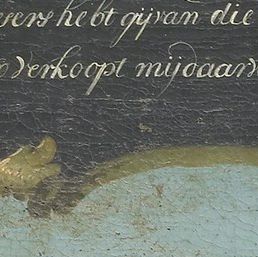 erers hebt gij van die
verkoopt mij daar